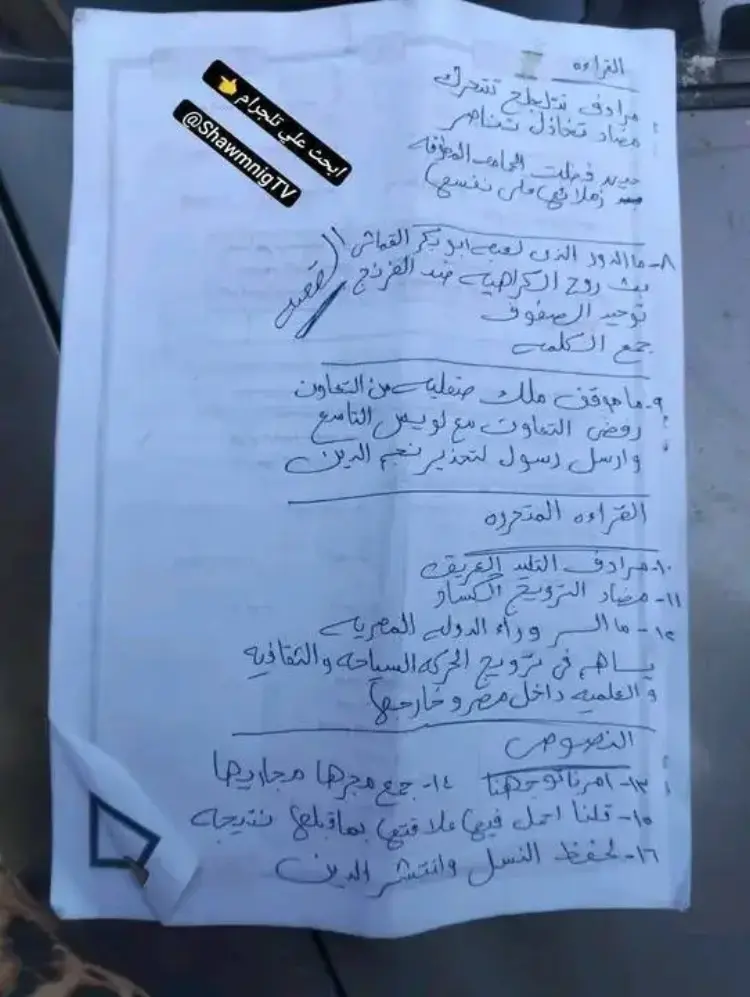 ابحث علي تلجرام 👈
@ShawmnigTV
القراءه
مرادف تتلجلج تتحرك
مضاد تخاذل تناصر
فضلت الحمامه المطوقه
زملائها على نفسها
٨- ما الدور الذى لعبه ابو بكر القماش
القصه
بث روح الكراهيه ضد الفرنج
توحيد الصفوف
جمع الكلمه
٩- ما موقف ملك صقليه من التعاون
رفض التعاون مع لويس التاسع
وارسل رسول لتحذير نجم الدين
القراءه المتحرره
١٠- مرادف التليد العريق
١١- مضاد الترويج الكساد
١٢- ما السر وراء الدوله المصريه
يساهم فى ترويج الحركه السياحه والثقافيه
والعلميه داخل مصر وخارجها
النصوص
١٣- امرنا توجهنا ١٤- جمع مجرها مجاريها
١٥- قلنا احمل فيها علاقتها بماقبلها نتيجه
١٦- لحفظ النسل وانتشر الدين